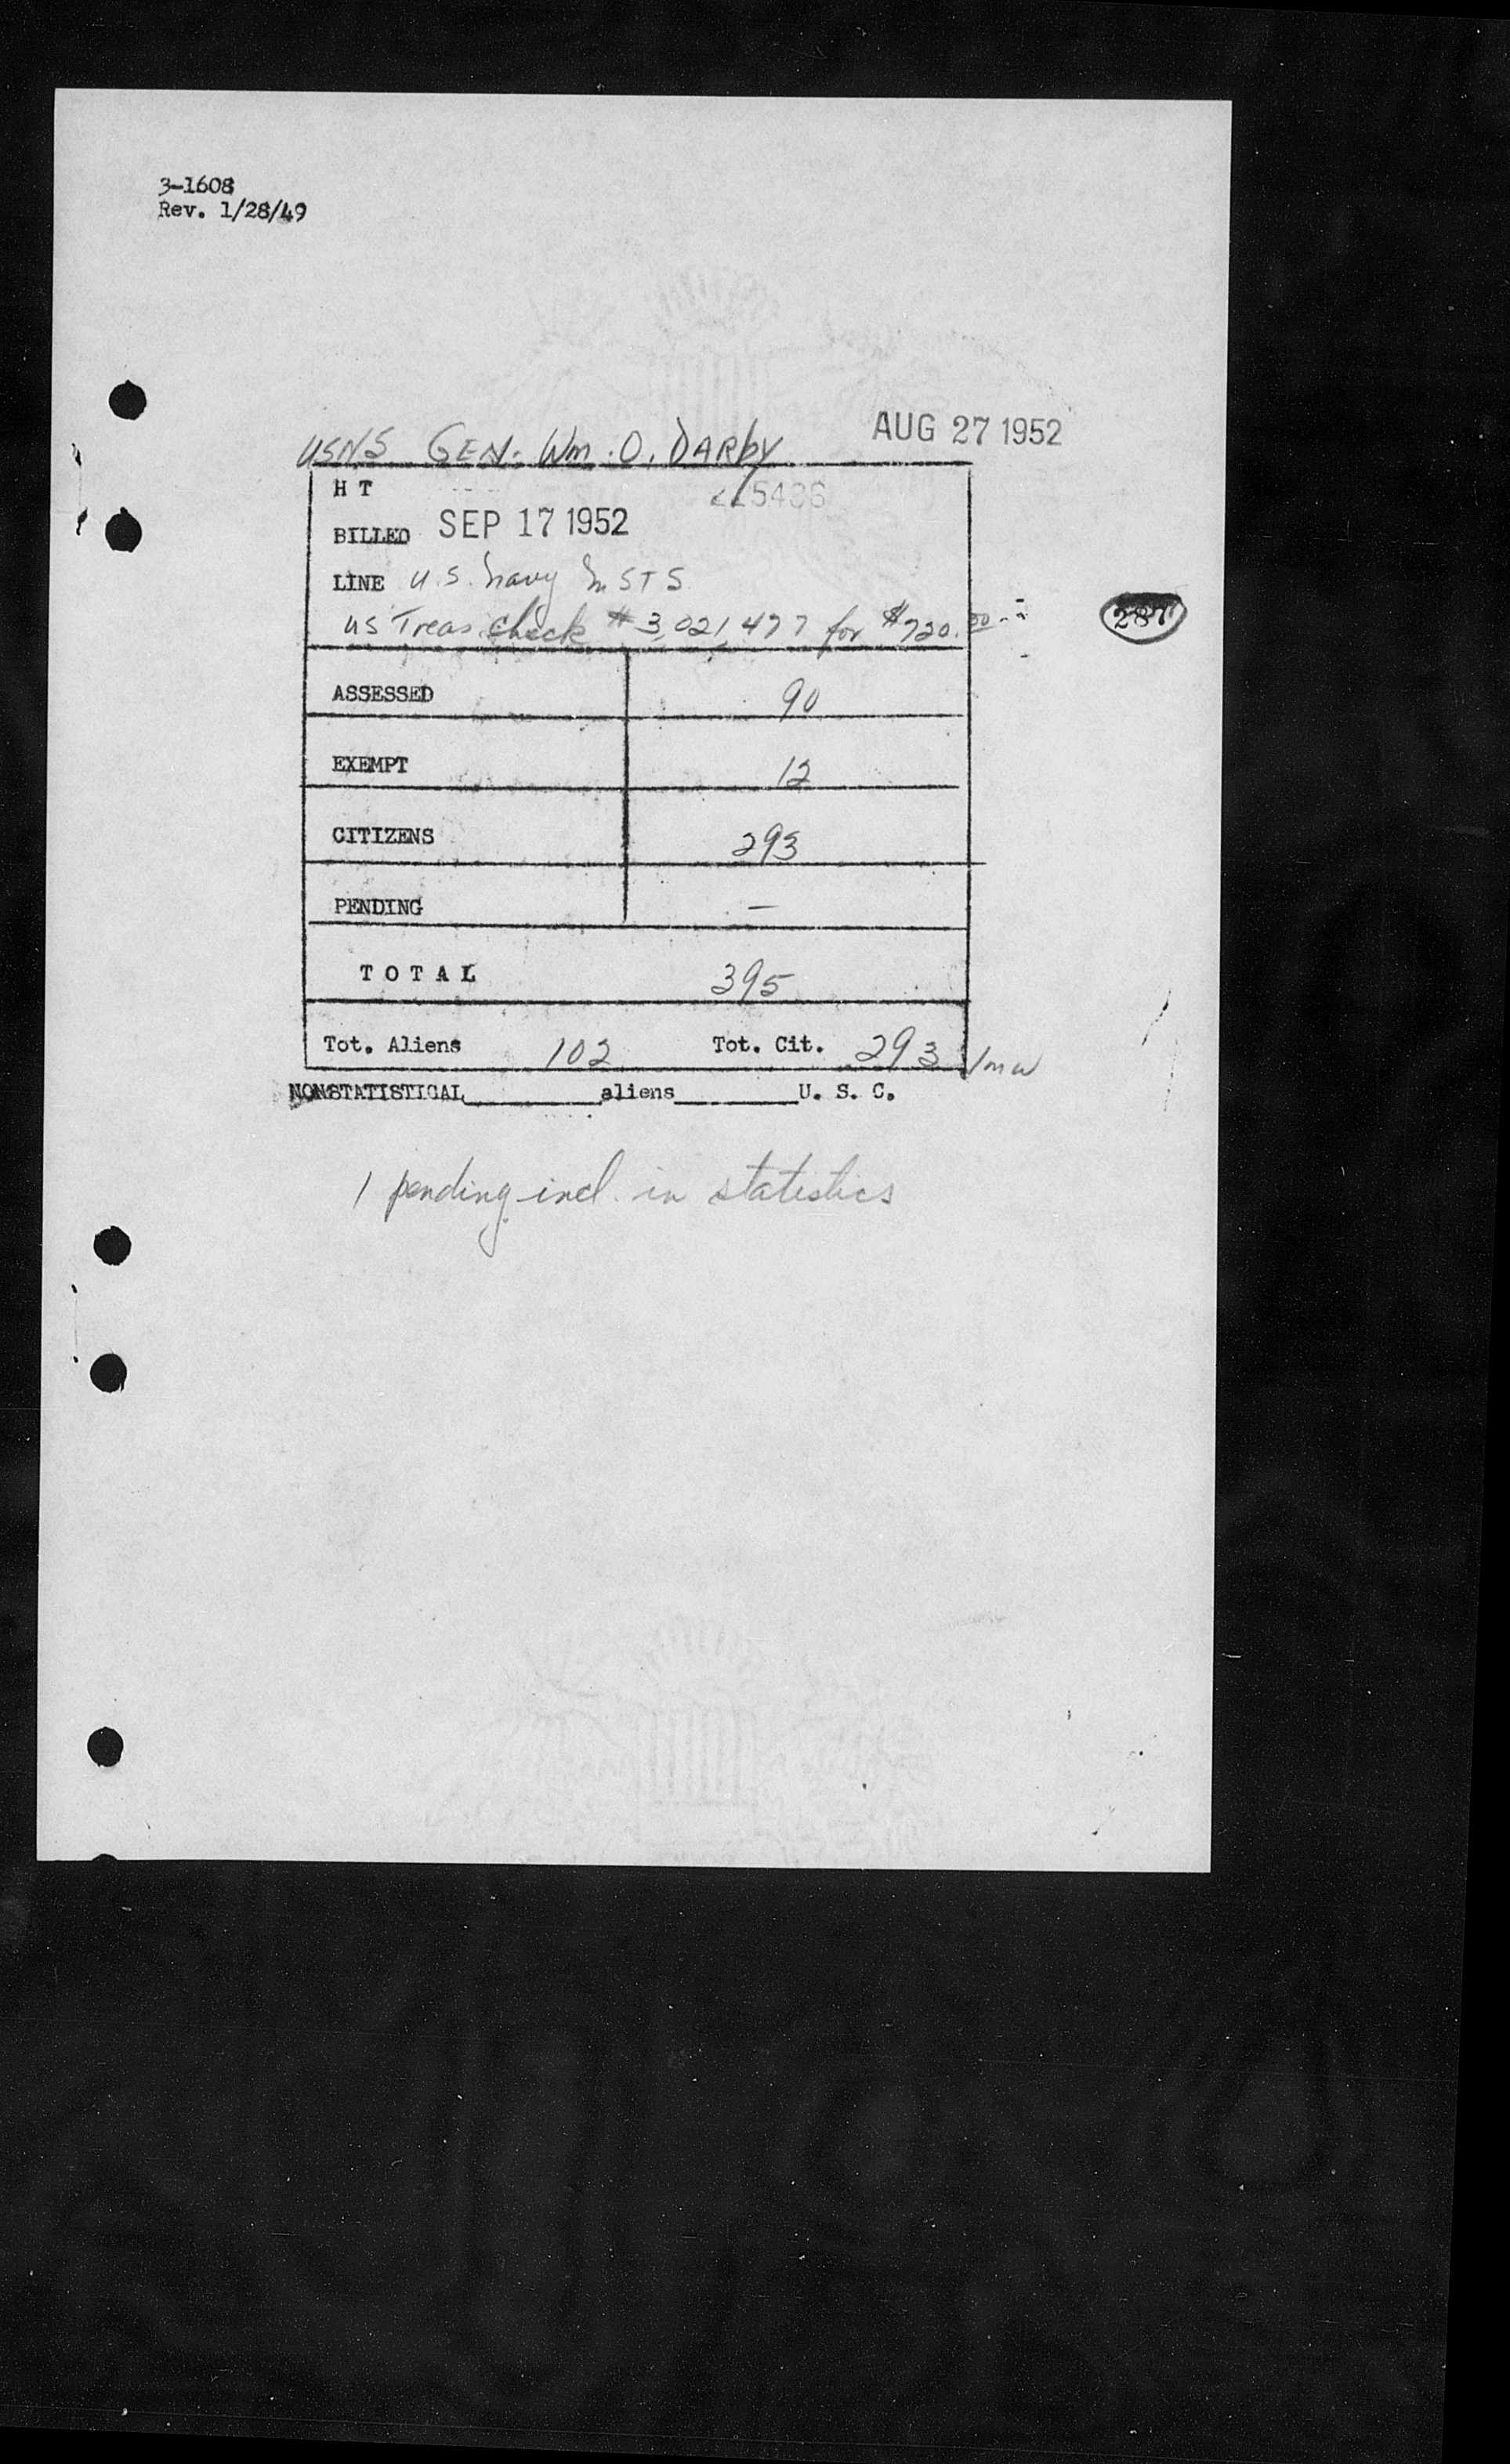 3-1608
Rev. 1/28/49
USNS GEN. Wm. O. DARBY AUG 27 1952
H T
BILLED SEP 17 1952
LINE U.S. Navy MSTS
US Treas. check # 3,021,477 for $720.00
287
ASSESSED 90
EXEMPT 12
CITIZENS 293
PENDING —
TOTAL 395
Tot. Aliens 102 Tot. Cit. 293 /mw
NONSTATISTICAL________aliens________U. S. C.
1 pending incl. in statistics